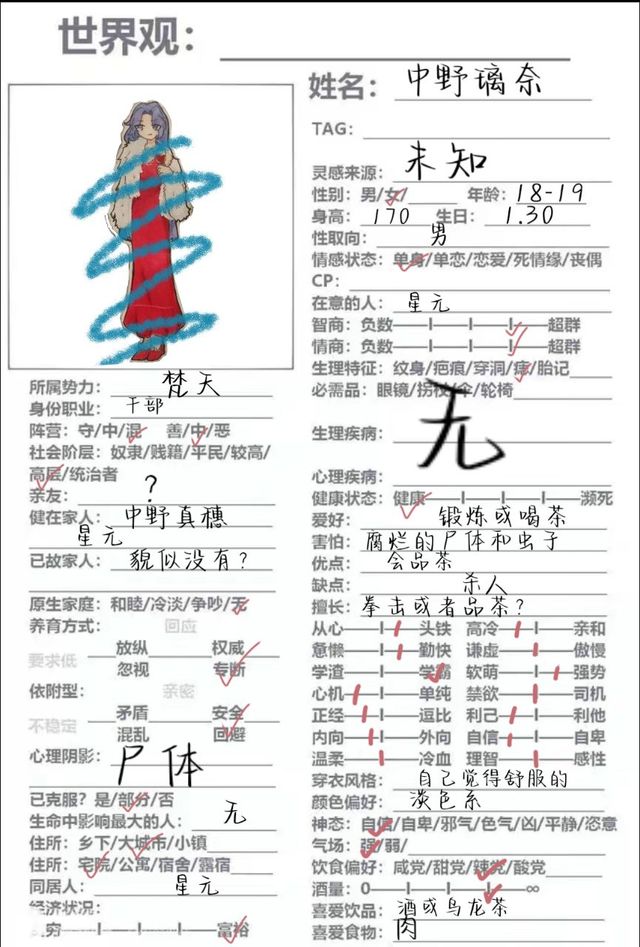 世界观：
姓名：中野璃奈
TAG：
灵感来源：未知
性别：男/女/ 年龄：18-19
身高：170 生日：1.30
性取向：男
情感状态：单身/单恋/恋爱/死情缘/丧偶
CP：
在意的人：星元
智商：负数 超群
情商：负数 超群
生理特征：纹身/疤痕/穿洞/痣/胎记
必需品：眼镜/拐杖/伞/轮椅
生理疾病：无
心理疾病：
健康状态：健康 濒死
爱好：锻炼或喝茶
害怕：腐烂的尸体和虫子
优点：会品茶
缺点：杀人
擅长：拳击或者品茶？
从心 头铁 高冷 亲和
怠懒 勤快 谦虚 傲慢
学渣 学霸 软萌 强势
心机 单纯 禁欲 司机
正经 逗比 利己 利他
内向 外向 自信 自卑
温柔 冷血 理智 感性
穿衣风格：自己觉得舒服的
颜色偏好：淡色系
神态：自信/自卑/邪气/色气/凶/平静/恣意
气场：强/弱/
饮食偏好：咸党/甜党/辣党/酸党
酒量：0 ∞
喜爱饮品：酒或乌龙茶
喜爱食物：肉
所属势力：梵天
身份职业：干部
阵营：守/中/混 善/中/恶
社会阶层：奴隶/贱籍/平民/较高/
高层/统治者
亲友：？
健在家人：中野真穗
星元
已故家人：貌似没有？
原生家庭：和睦/冷淡/争吵/无
养育方式： 回应
放纵 权威
要求低
忽视 专断
依附型： 亲密
矛盾 安全
不稳定
混乱 回避
心理阴影：尸体
已克服？是/部分/否
生命中影响最大的人：无
住所：乡下/大城市/小镇
住所：宅院/公寓/宿舍/露宿
同居人：星元
经济状况：
穷 富裕